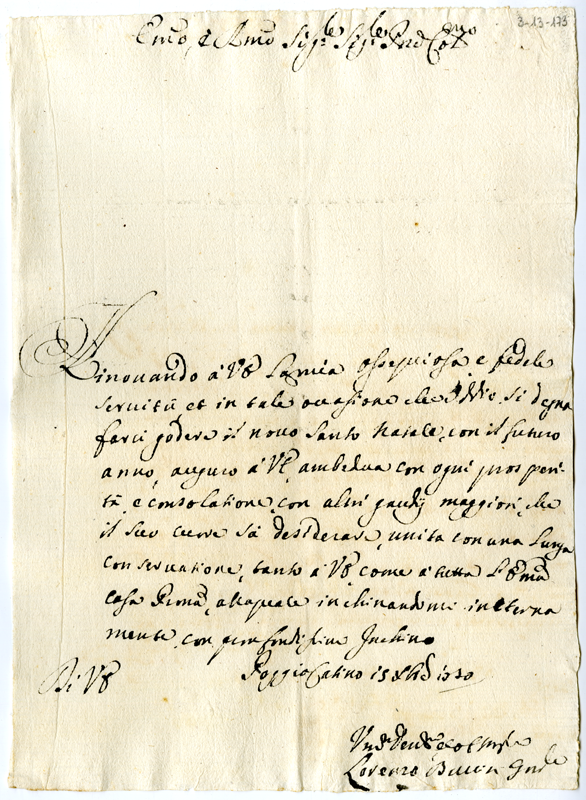 3-13-173
Emo, e Rmo Sigre Sigre Prone Colmo
Rinouando à VE la mia ossequiosa e fedele
seruitù et in tale occasione che Iddio si degna
farci godere il nouo Santo Natale, con il futuro
anno, auguro à VE ambedua con ogni prosperi-
tà, e consolatione, con altri gaudij maggiori, che
il suo cuore sà desiderare, unita con una lunga
conseruatione, tanto à VE, come à tutta l'Ema
Casa, alla quale inchinandomi in eterna
mente, con profondissimo Inchino
Di VE
Poggio Catino 15
Lorenzo